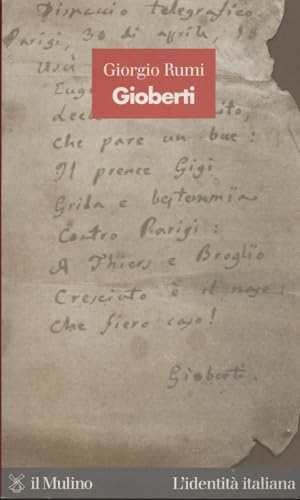 Dispaccio telegrafico
Parigi, 30 di aprile, 18
Uscì
Giorgio Rumi
Gioberti
Euge
decre ito,
che pare un bue:
Il prence Gigi
Grida e bestemmia
Contro Parigi:
A Thiers e Broglio
Cresciuto è il naso:
Che fiero caso!
Gioberti.
il Mulino
L'identità italiana